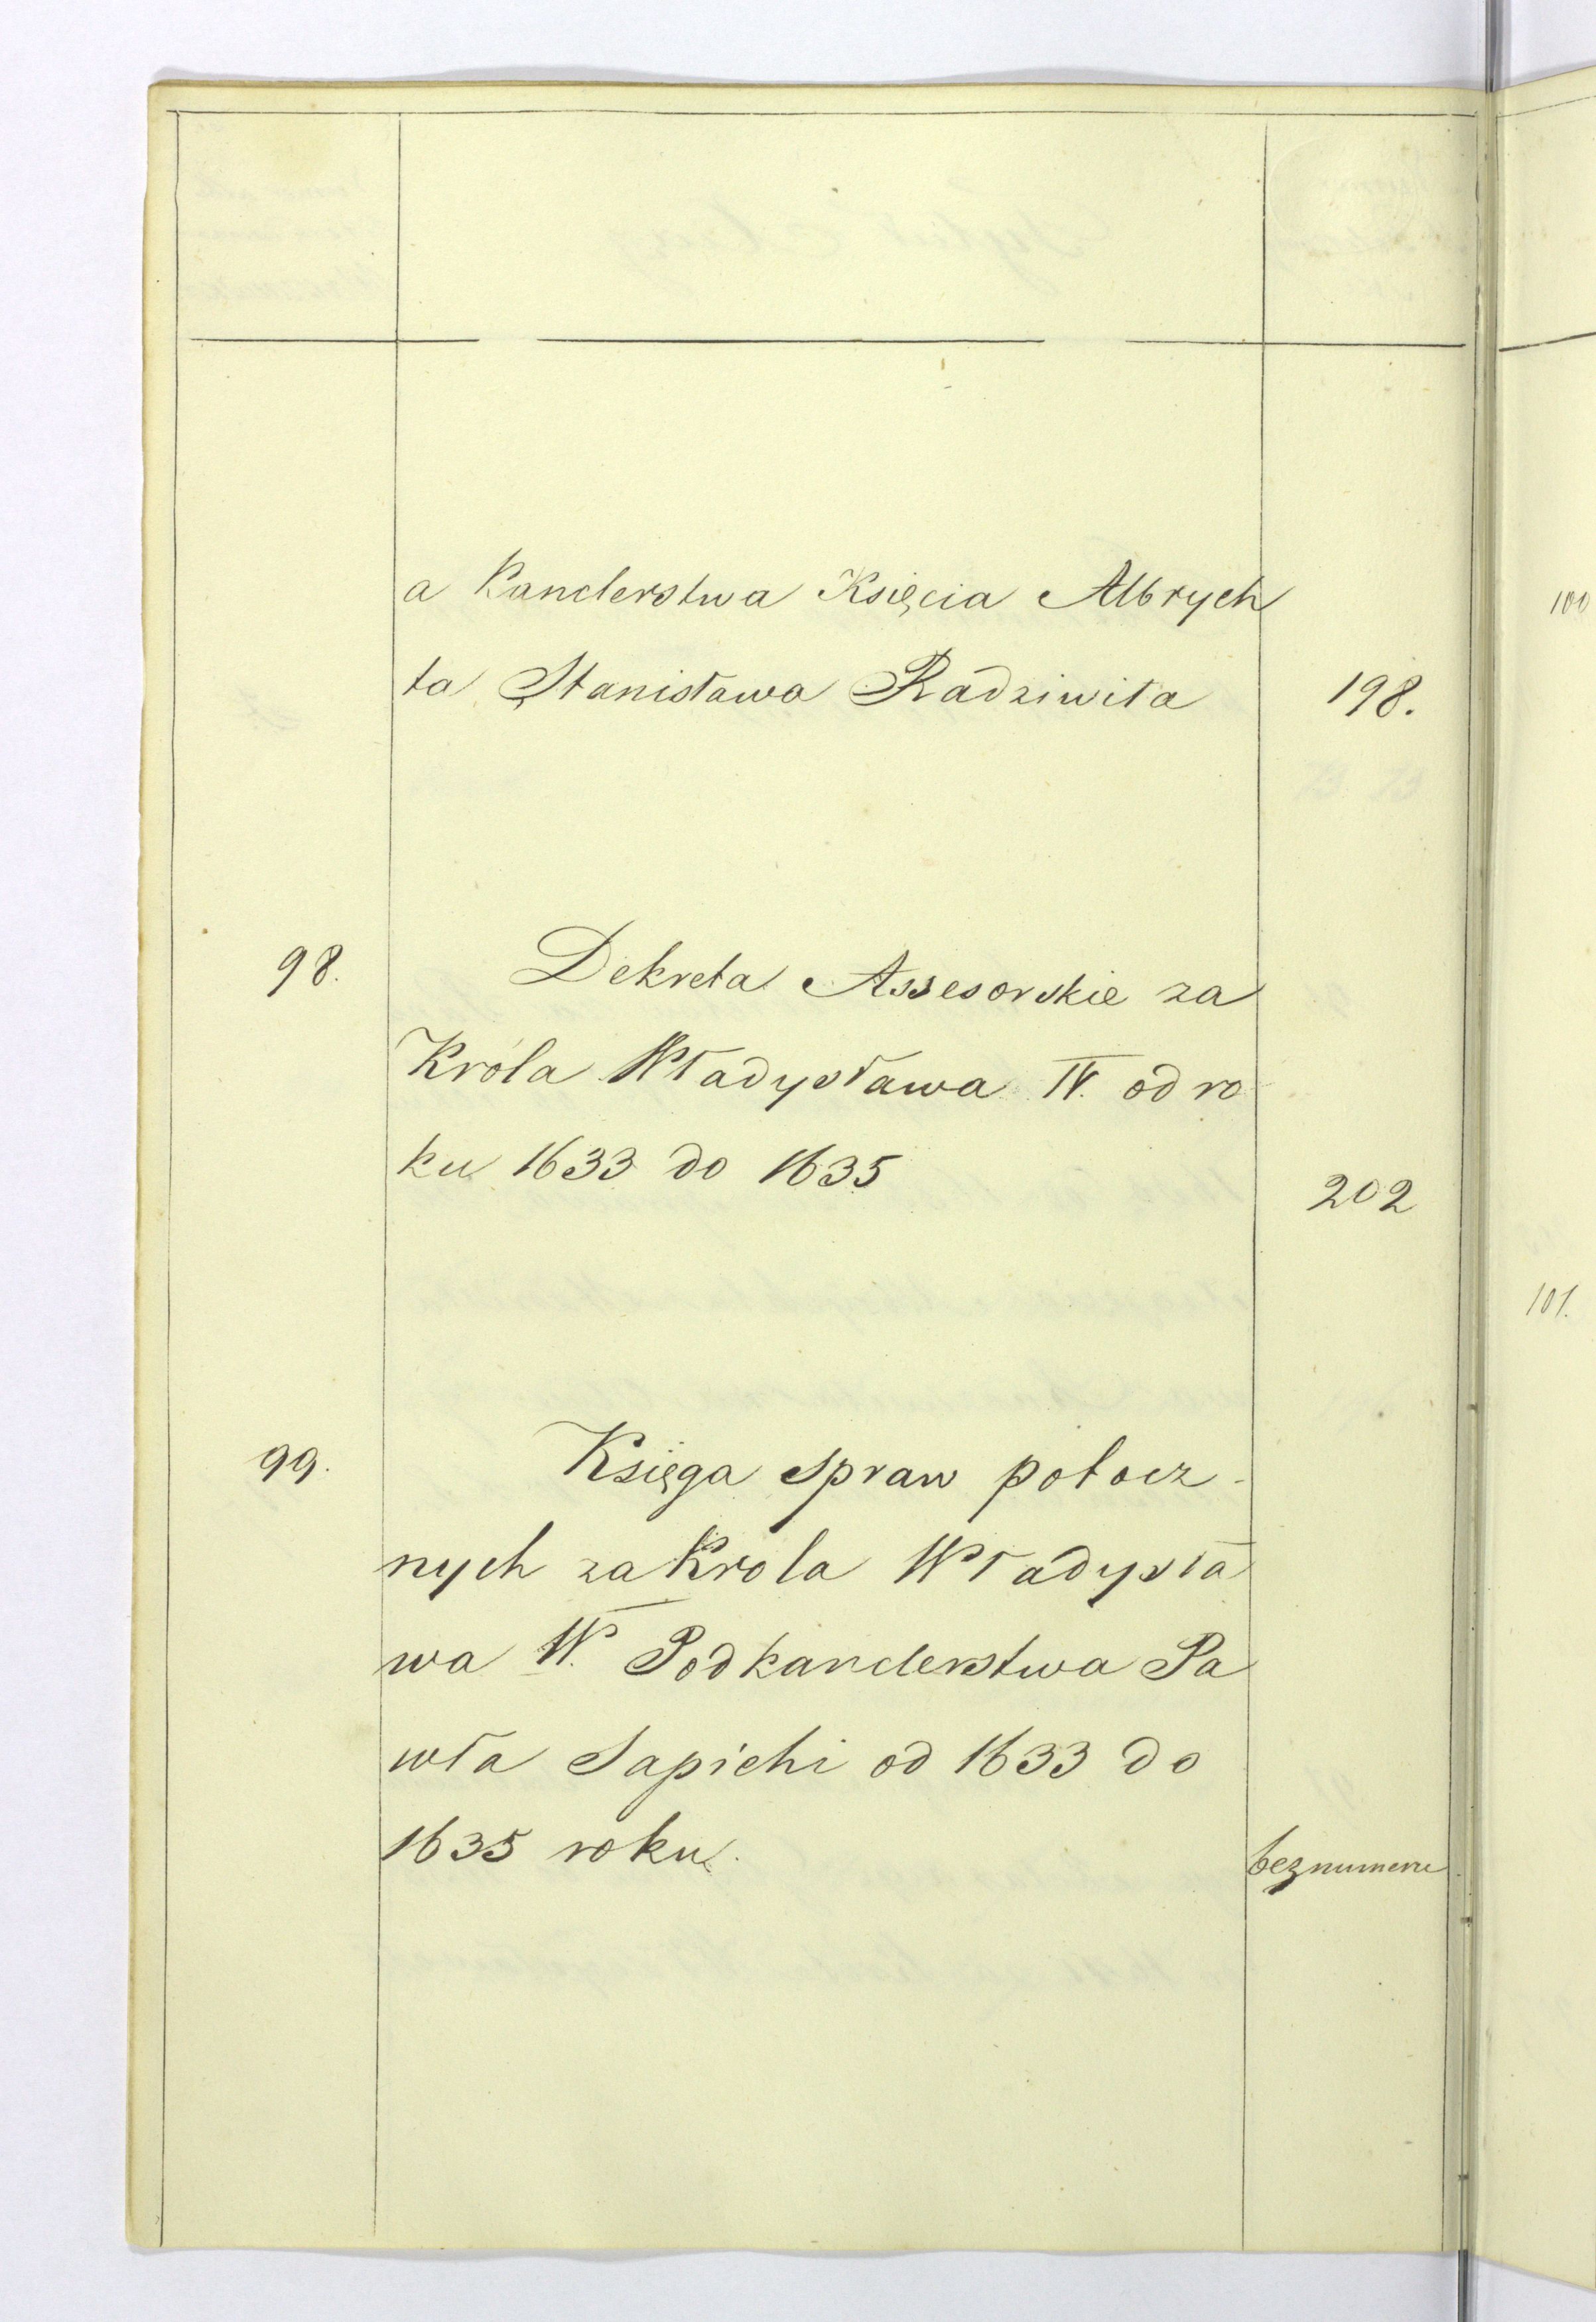 a Kanclerstwa Księcia Albrych
ta Stanisława Radziwiła 198.
98. Dekreta Assesorskie za
Króla Władysława IV. od ro
ku 1633 do 1635
202
99. Księga spraw potocz-
nych za Krola Władysła
wa IV. Podkanclerstwa Pa
wła Sapiehi od 1633 do
1635 roku.
bez numeru
100
101.